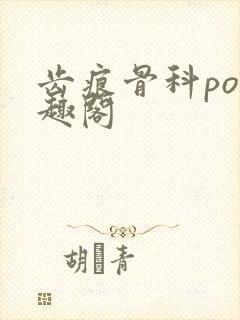 齿痕骨科po
趣阁
胡青